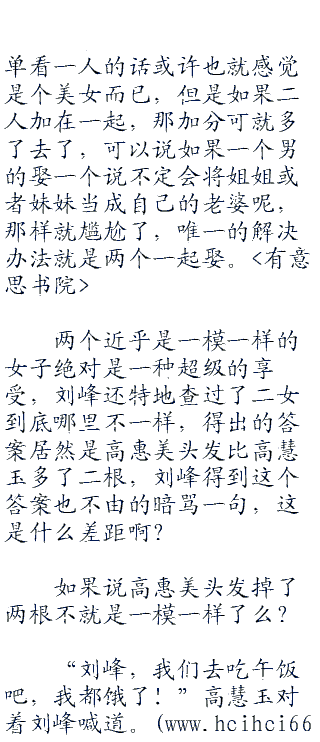 单看一人的话或许也就感觉
是个美女而已，但是如果二
人加在一起，那加分可就多
了去了，可以说如果一个男
的娶一个说不定会将姐姐或
者妹妹当成自己的老婆呢，
那样就尴尬了，唯一的解决
办法就是两个一起娶。<有意
思书院>
两个近乎是一模一样的
女子绝对是一种超级的享
受，刘峰还特地查过了二女
到底哪里不一样，得出的答
案居然是高惠美头发比高慧
玉多了二根，刘峰得到这个
答案也不由的暗骂一句，这
是什么差距啊？
如果说高惠美头发掉了
两根不就是一模一样了么？
“刘峰，我们去吃午饭
吧，我都饿了！”高慧玉对
着刘峰喊道。(www.hcihci66